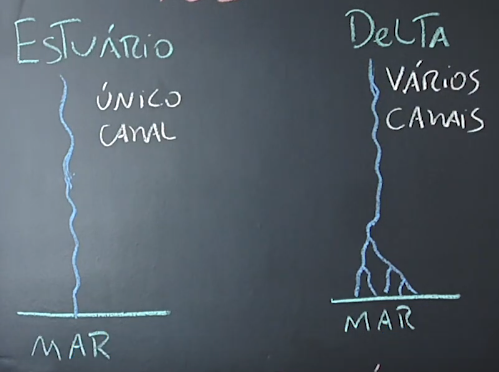 ESTUÁRIO
ÚNICO
CANAL
MAR
DELTA
VÁRIOS
CANAIS
MAR